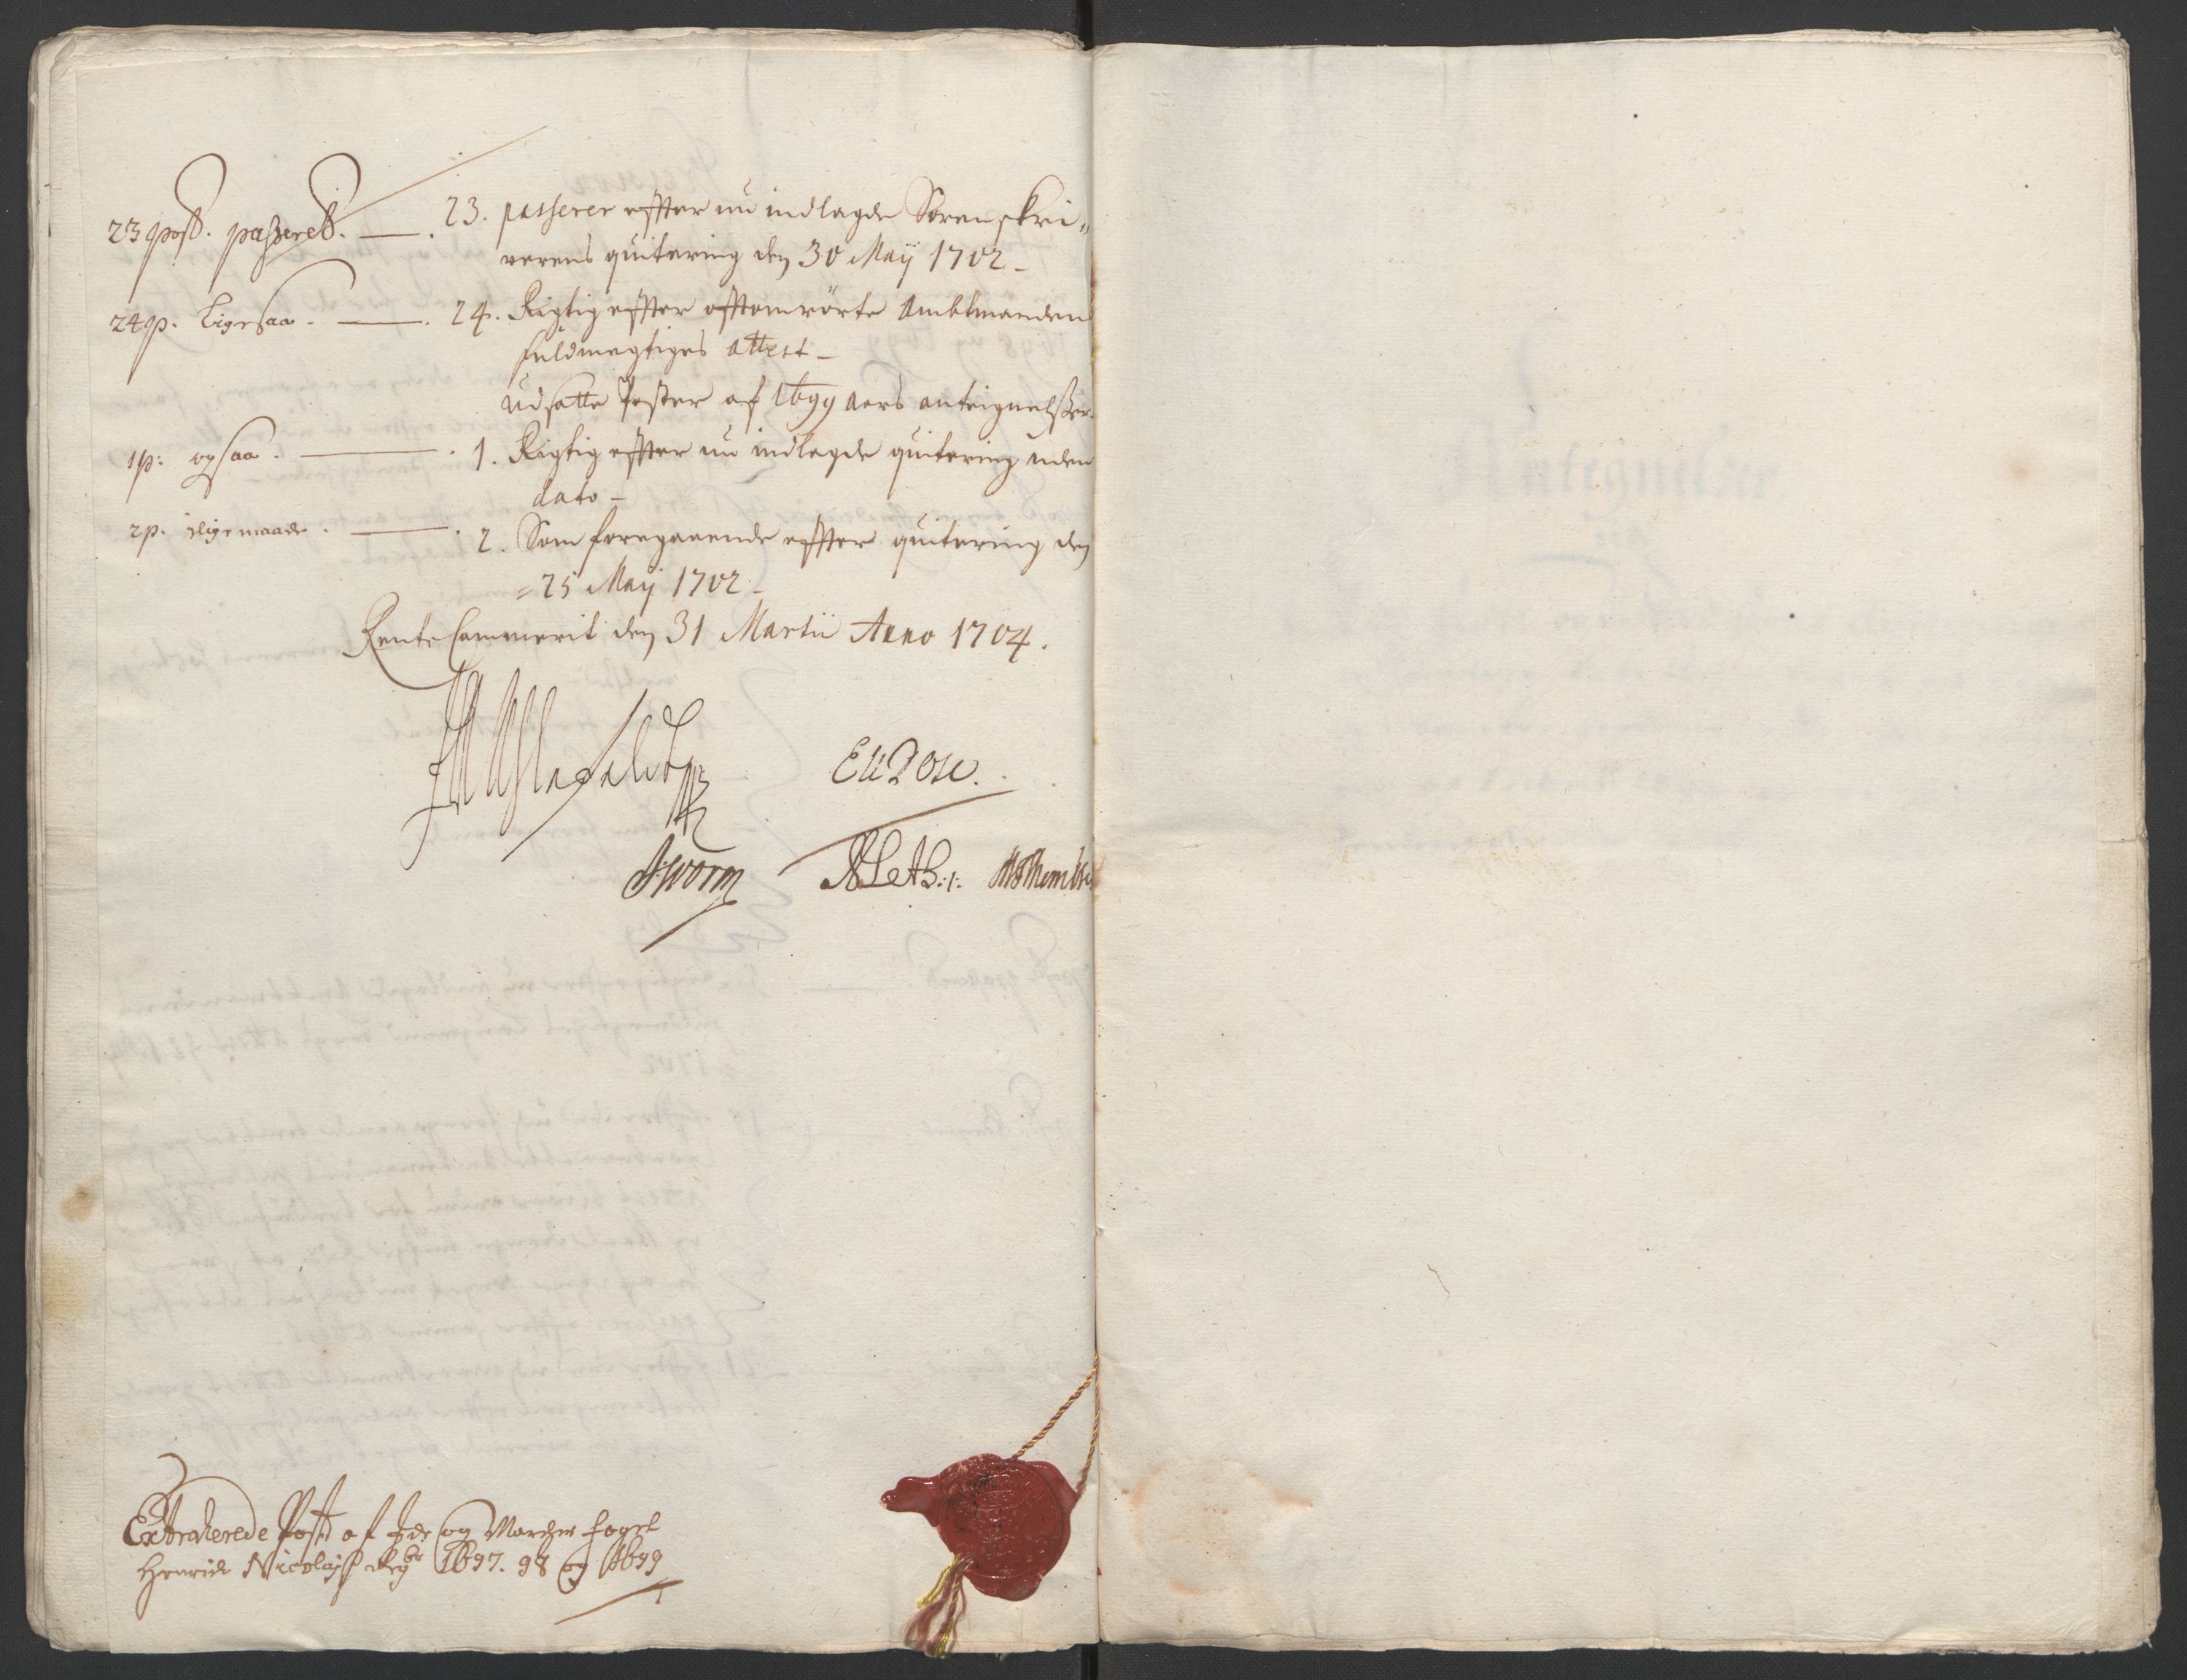 23 post. passeret. — . 23. passerer effter nu indlagde Sorenskri-
verens quitering den 30 Maij 1702 -
24 p. Ligesaa. — . 24. Rigtig effter offtomrörte Ambtmanden
fuldmegtiges attest -
udsatte Poster af 1699 aars antegnelsser.
1 p: ogsaa. — . 1. Rigtig effter nu indlagde quitering uden
dato -
2 p. ligemaade. — . 2. Som foregaaende effter quitering den
= 25 Maij 1702 -
Rente Cammerit den 31 Martii Anno 1704.
Worm
Extraherede Post af Ide og Marcker foget
Henrich Nicolajs Regb 1697. 98 og 1699